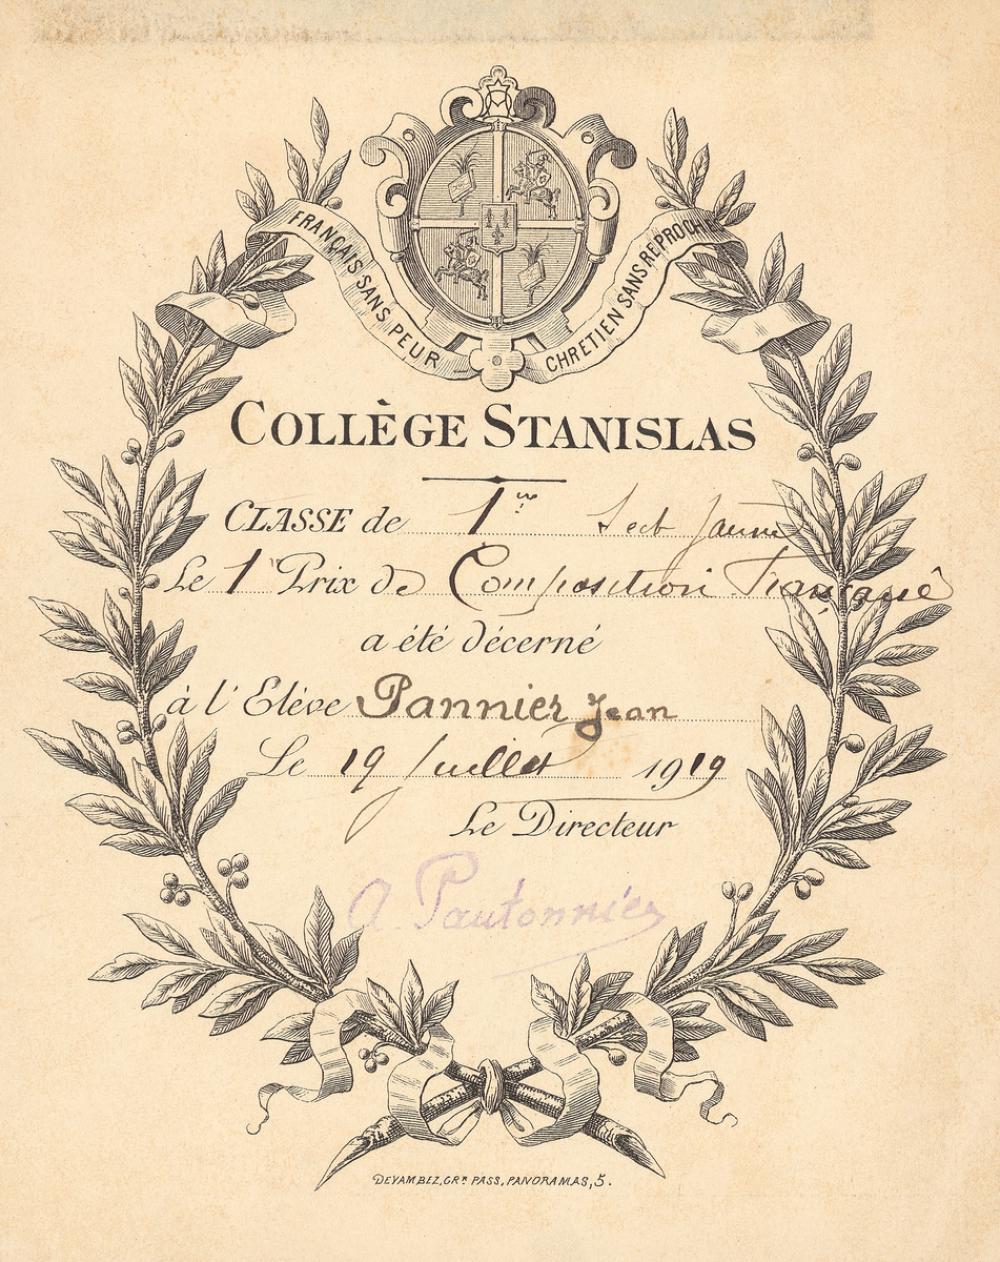 FRANÇAIS SANS PEUR CHRETIEN SANS REPROCHE
COLLÈGE STANISLAS
CLASSE de 1re Sect Jaune
Le 1er Prix de Composition Française
a été décerné
à l'Elève Pannier Jean
Le 19 Juillet 1919
Le Directeur
A. Pautonnier
DEVAMBEZ, GR. PASS. PANORAMAS, 5.